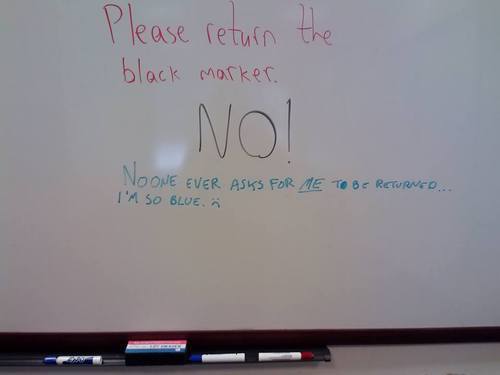 Please return the
black marker.
NO!
NO ONE EVER ASKS FOR ME TO BE RETURNED...
I'M SO BLUE. :(